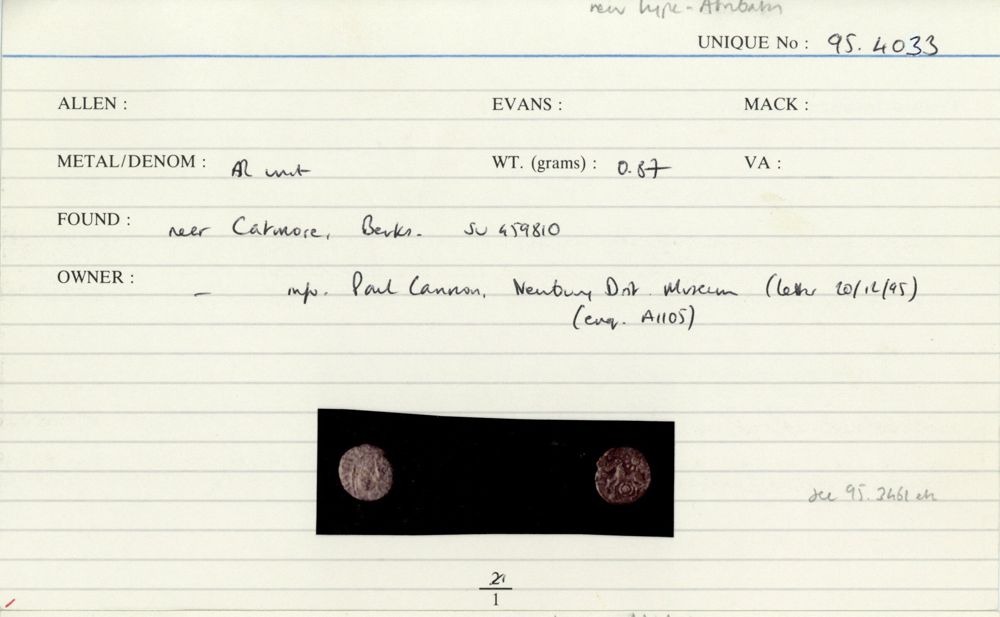 new type - Atrebatic
UNIQUE No : 95.4033
ALLEN : EVANS : MACK :
METAL/DENOM : AR unit WT. (grams) : 0.87 VA :
FOUND : near Catmore, Berks. SU 459810
OWNER : – info. Paul Cannon, Newbury Dist. Museum (letter 20/12/95)
(enq. A1105)
see 95.3461 etc
2
1